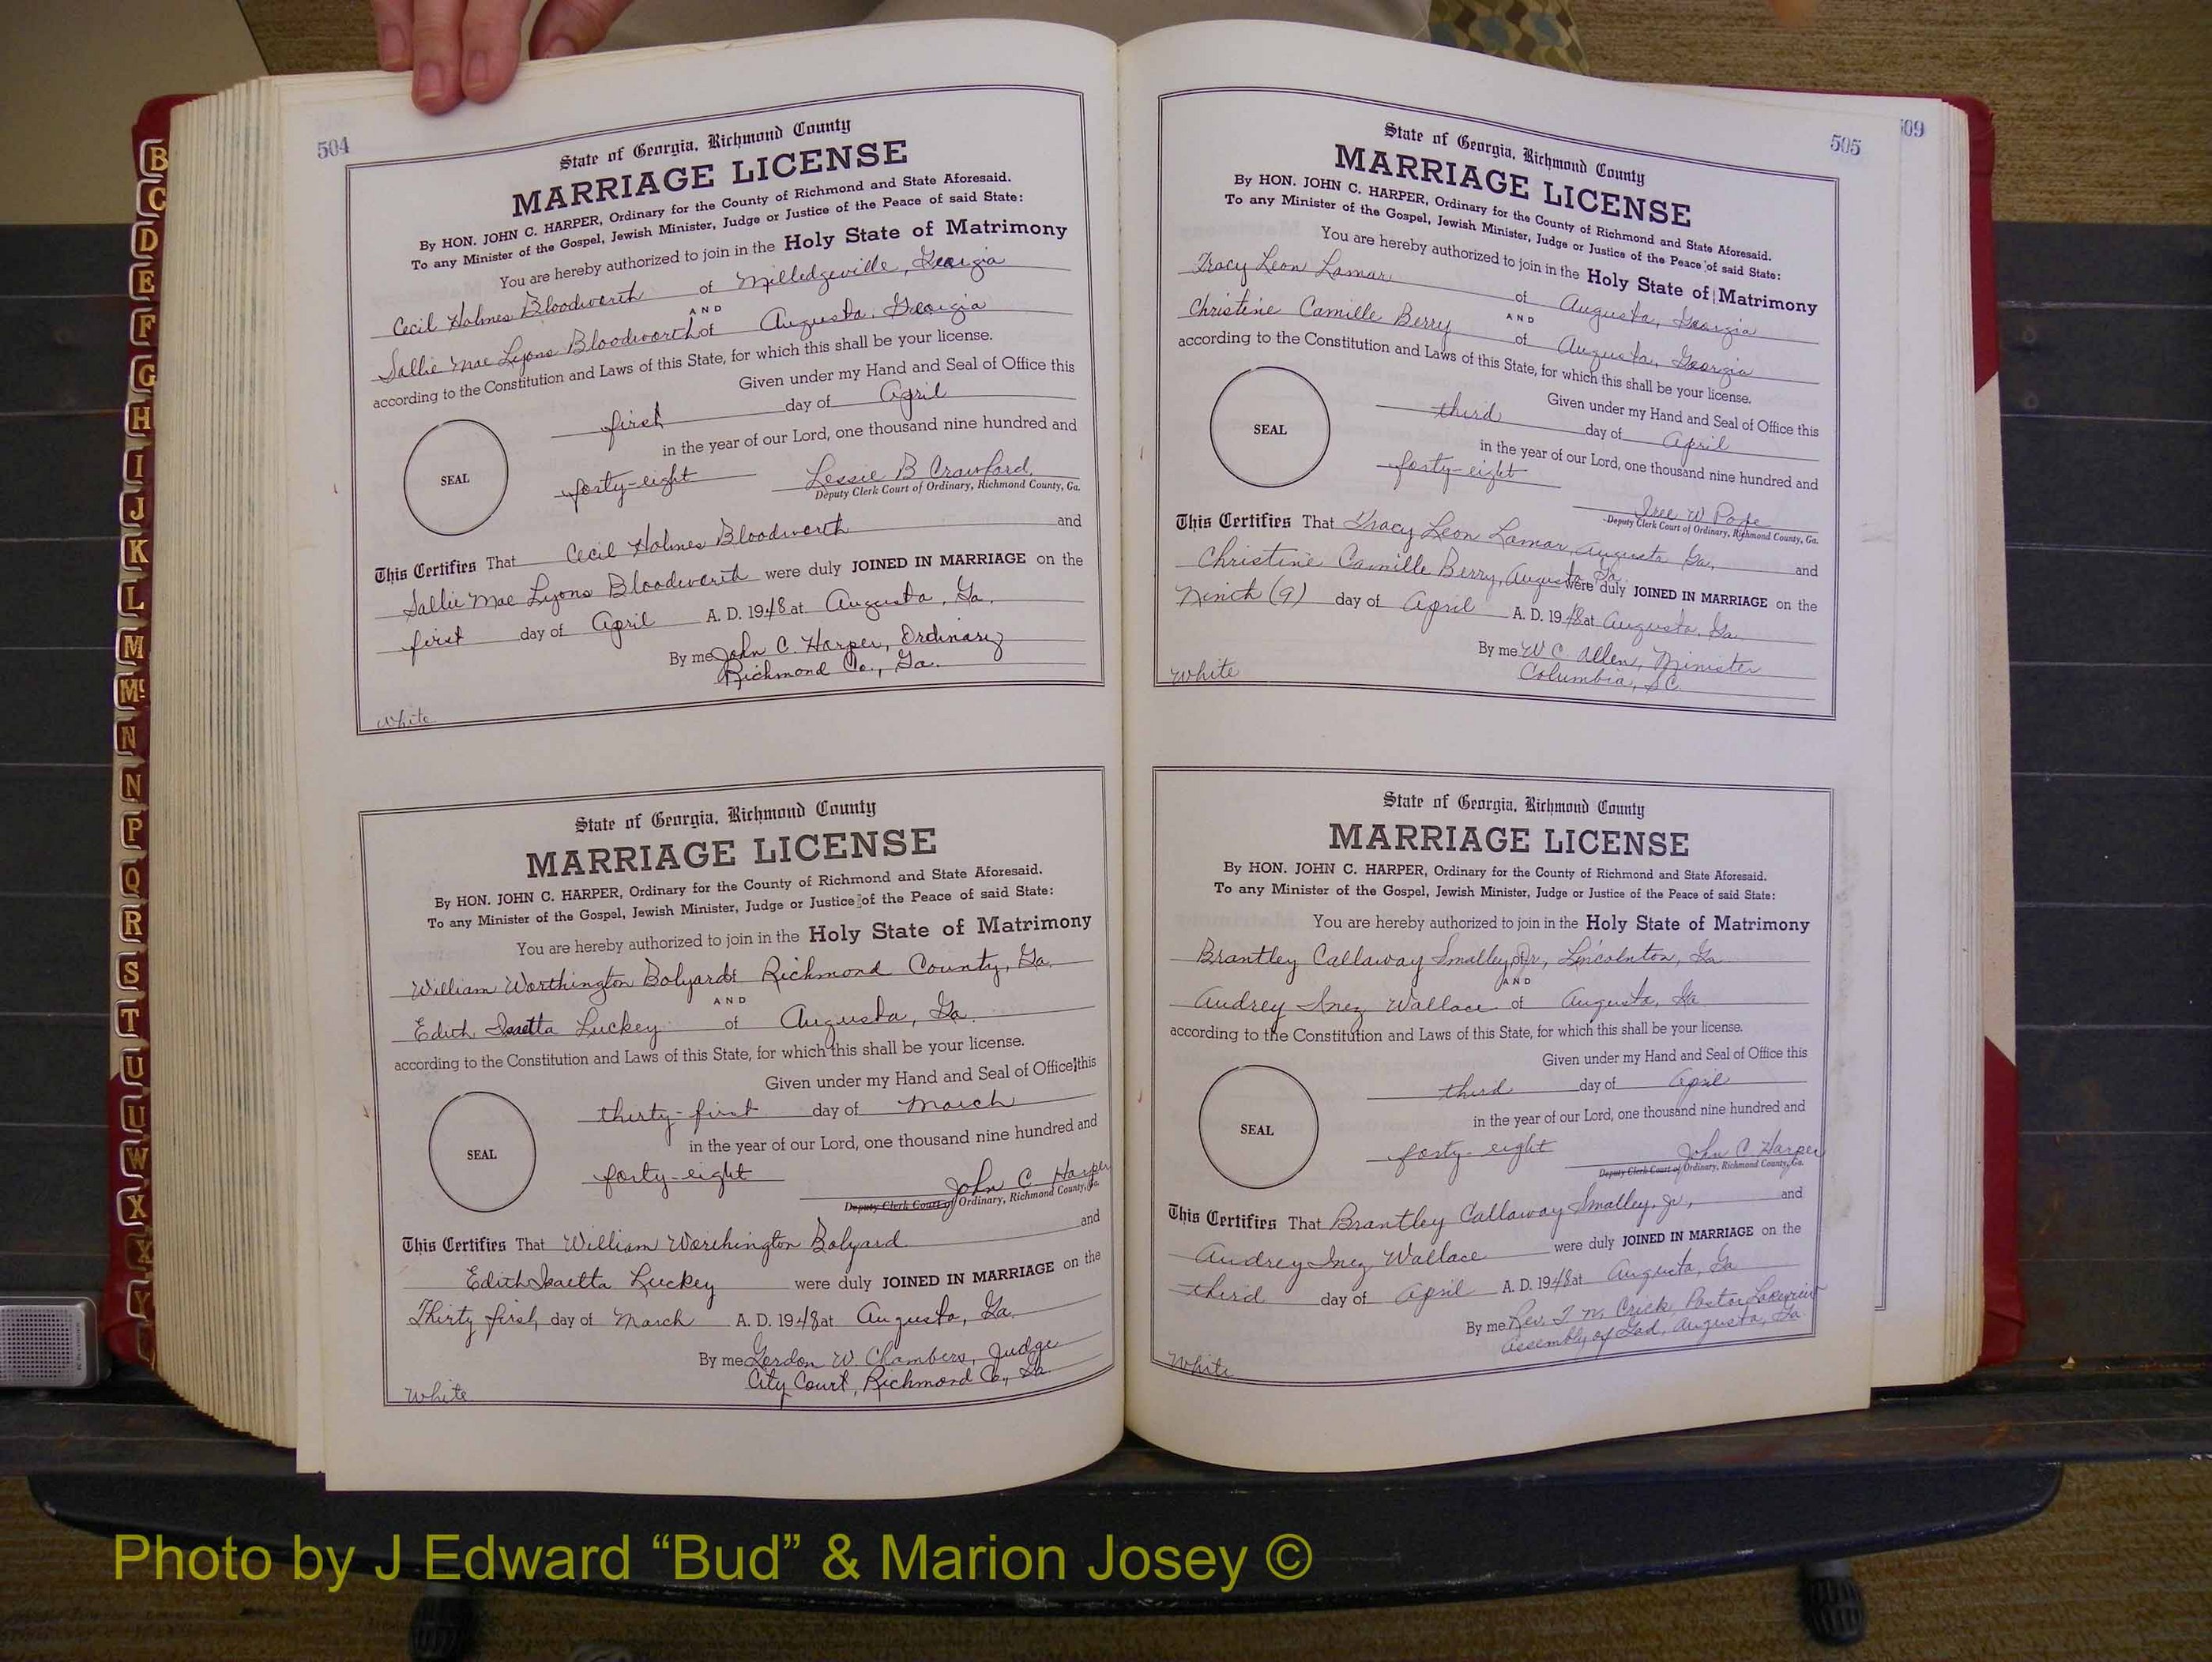 504
State of Georgia, Richmond County
MARRIAGE LICENSE
By HON. JOHN C. HARPER, Ordinary for the County of Richmond and State Aforesaid.
To any Minister of the Gospel, Jewish Minister, Judge or Justice of the Peace of said State:
You are hereby authorized to join in the Holy State of Matrimony
Cecil Holmes Bloodworth of Milledgeville, Georgia
AND
Sallie Mae Lyons Bloodworth of Augusta, Georgia
according to the Constitution and Laws of this State, for which this shall be your license.
Given under my Hand and Seal of Office this
first day of April
in the year of our Lord, one thousand nine hundred and
SEAL
forty-eight Lessie B Crawford
Deputy Clerk Court of Ordinary, Richmond County, Ga.
This Certifies That Cecil Holmes Bloodworth and
Sallie Mae Lyons Bloodworth were duly JOINED IN MARRIAGE on the
first day of April A. D. 1948 at Augusta, Ga.
By me John C. Harper, Ordinary
Richmond Co., Ga.
White
State of Georgia, Richmond County
MARRIAGE LICENSE
By HON. JOHN C. HARPER, Ordinary for the County of Richmond and State Aforesaid.
To any Minister of the Gospel, Jewish Minister, Judge or Justice of the Peace of said State:
You are hereby authorized to join in the Holy State of Matrimony
William Worthington Bolyard of Richmond County, Ga.
AND
Edith Isaetta Luckey of Augusta, Ga.
according to the Constitution and Laws of this State, for which this shall be your license.
Given under my Hand and Seal of Office this
thirty-first day of March
in the year of our Lord, one thousand nine hundred and
SEAL
forty-eight John C. Harper
Deputy Clerk Court of Ordinary, Richmond County, Ga.
This Certifies That William Worthington Bolyard and
Edith Isaetta Luckey were duly JOINED IN MARRIAGE on the
Thirty first day of March A. D. 1948 at Augusta, Ga.
By me Gordon W. Chambers, Judge
City Court, Richmond Co., Ga.
White
505
509
State of Georgia, Richmond County
MARRIAGE LICENSE
By HON. JOHN C. HARPER, Ordinary for the County of Richmond and State Aforesaid.
To any Minister of the Gospel, Jewish Minister, Judge or Justice of the Peace of said State:
You are hereby authorized to join in the Holy State of Matrimony
Tracy Leon Lamar of Augusta, Georgia
AND
Christine Camille Berry of Augusta, Georgia
according to the Constitution and Laws of this State, for which this shall be your license.
Given under my Hand and Seal of Office this
third day of April
in the year of our Lord, one thousand nine hundred and
SEAL
forty-eight
W Pope
Deputy Clerk Court of Ordinary, Richmond County, Ga.
This Certifies That Tracy Leon Lamar, Augusta Ga., and
Christine Camille Berry, Augusta Ga. were duly JOINED IN MARRIAGE on the
Ninth (9) day of April A. D. 1948 at Augusta, Ga.
By me W C Allen, Minister
Columbia, S.C.
White
State of Georgia, Richmond County
MARRIAGE LICENSE
By HON. JOHN C. HARPER, Ordinary for the County of Richmond and State Aforesaid.
To any Minister of the Gospel, Jewish Minister, Judge or Justice of the Peace of said State:
You are hereby authorized to join in the Holy State of Matrimony
Brantley Callaway Smalley, Jr, of Lincolnton, Ga
AND
Audrey Inez Wallace of Augusta, Ga
according to the Constitution and Laws of this State, for which this shall be your license.
Given under my Hand and Seal of Office this
third day of April
in the year of our Lord, one thousand nine hundred and
SEAL
forty-eight John C. Harper
Deputy Clerk Court of Ordinary, Richmond County, Ga.
This Certifies That Brantley Callaway Smalley, Jr, and
Audrey Inez Wallace were duly JOINED IN MARRIAGE on the
third day of April A. D. 1948 at Augusta, Ga
By me Rev. T. N. Crick, Pastor Lakeview
Assembly of God, Augusta, Ga
White
B
C
D
E
F
G
H
I
J
K
L
M
Mc
N
N
P
Q
R
S
T
U
U
W
X
X
Y
Photo by J Edward “Bud” & Marion Josey ©